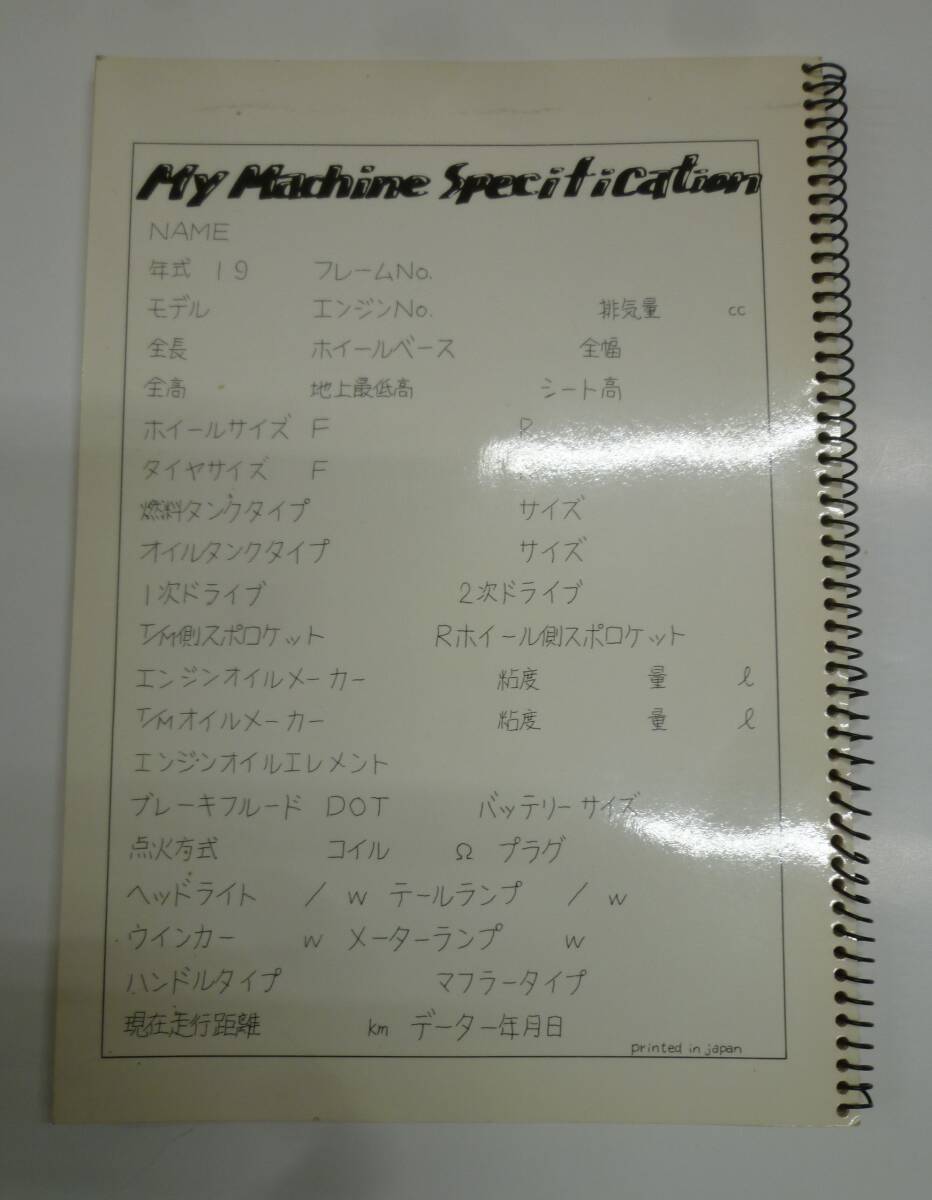 My Machine Specification
NAME
年式 19 フレームNo.
モデル エンジンNo. 排気量 cc
全長 ホイールベース 全幅
全高 地上最低高 シート高
ホイールサイズ F R
タイヤサイズ F
燃料タンクタイプ サイズ
オイルタンクタイプ サイズ
1次ドライブ 2次ドライブ
T/M側スポロケット Rホイール側スポロケット
エンジンオイルメーカー 粘度 量 ℓ
T/Mオイルメーカー 粘度 量 ℓ
エンジンオイルエレメント
ブレーキフルード DOT バッテリーサイズ
点火方式 コイル Ω プラグ
ヘッドライト / w テールランプ / w
ウインカー w メーターランプ w
ハンドルタイプ マフラータイプ
現在走行距離 km データー年月日
printed in japan